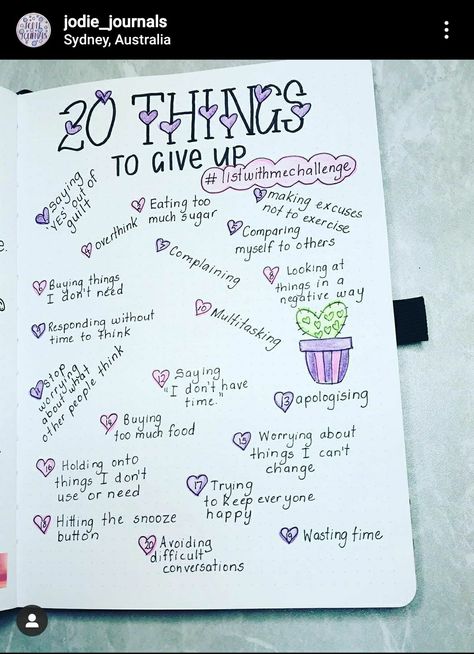 jodie_journals
Sydney, Australia
20 THINGS
TO GIVE UP
#listwithmechallenge
1 Saying
'YES' out of
guilt
2 Eating too
much sugar
3 making excuses
not to exercise
4 overthink
5 Comparing
myself to others
Complaining
Buying things
I don't need
8 Looking at
things in a
negative way
Responding without
time to think
10 Multitasking
11 Stop
worrying
about what
other people think
12 Saying
"I don't have
time."
13 apologising
14 Buying
too much food
15 Worrying about
things I can't
change
16 Holding onto
things I don't
use or need
17 Trying
to keep everyone
happy
18 Hitting the snooze
button
19 Wasting time
20 Avoiding
difficult
conversations